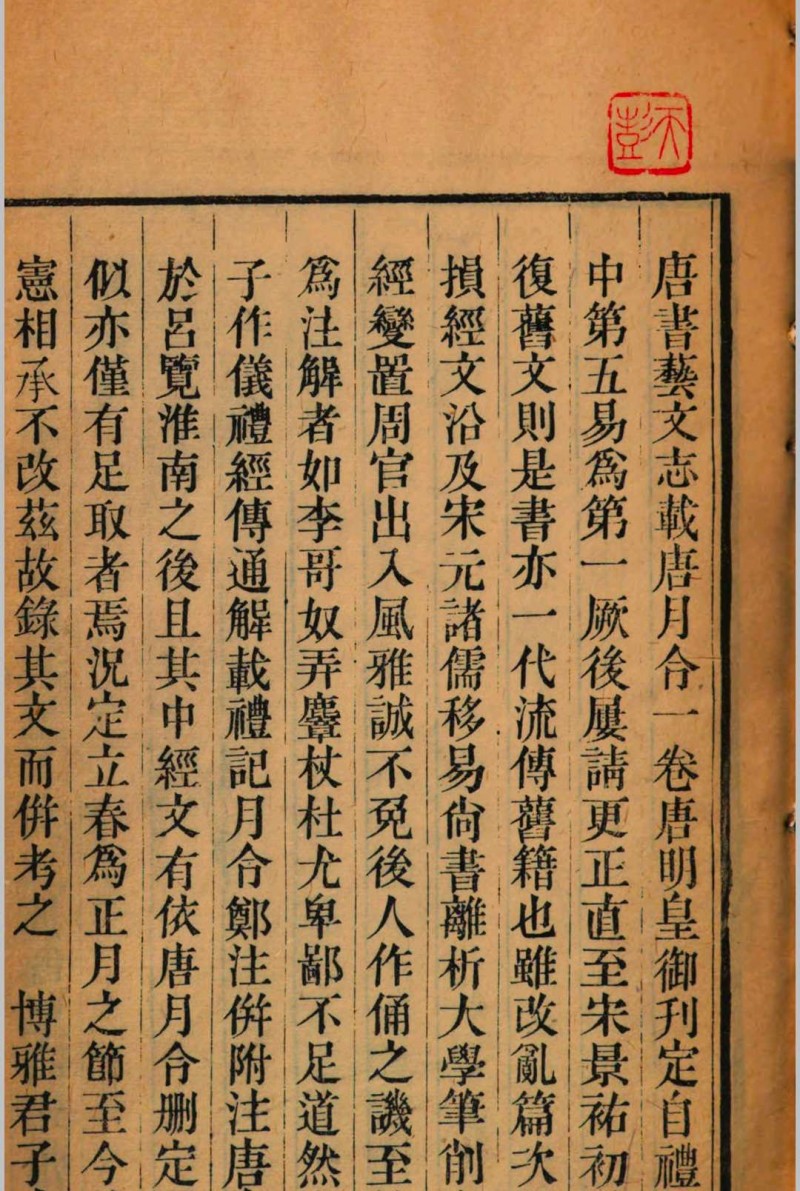 唐書藝文志載唐月令一卷唐明皇御刋定自禮
中第五易爲第一厥後屢請更正直至宋景祐初
復舊文則是書亦一代流傳舊籍也雖改亂篇次
損經文沿及宋元諸儒移易尙書離析大學筆削
經變置周官出入風雅誠不免後人作俑之譏至
爲注解者如李哥奴弄麞杖杜尤卑鄙不足道然
子作儀禮經傳通解載禮記月令鄭注併附注唐
於呂覽淮南之後且其中經文有依唐月令删定
似亦僅有足取者焉況定立春爲正月之節至今
憲相承不改茲故錄其文而併考之　博雅君子